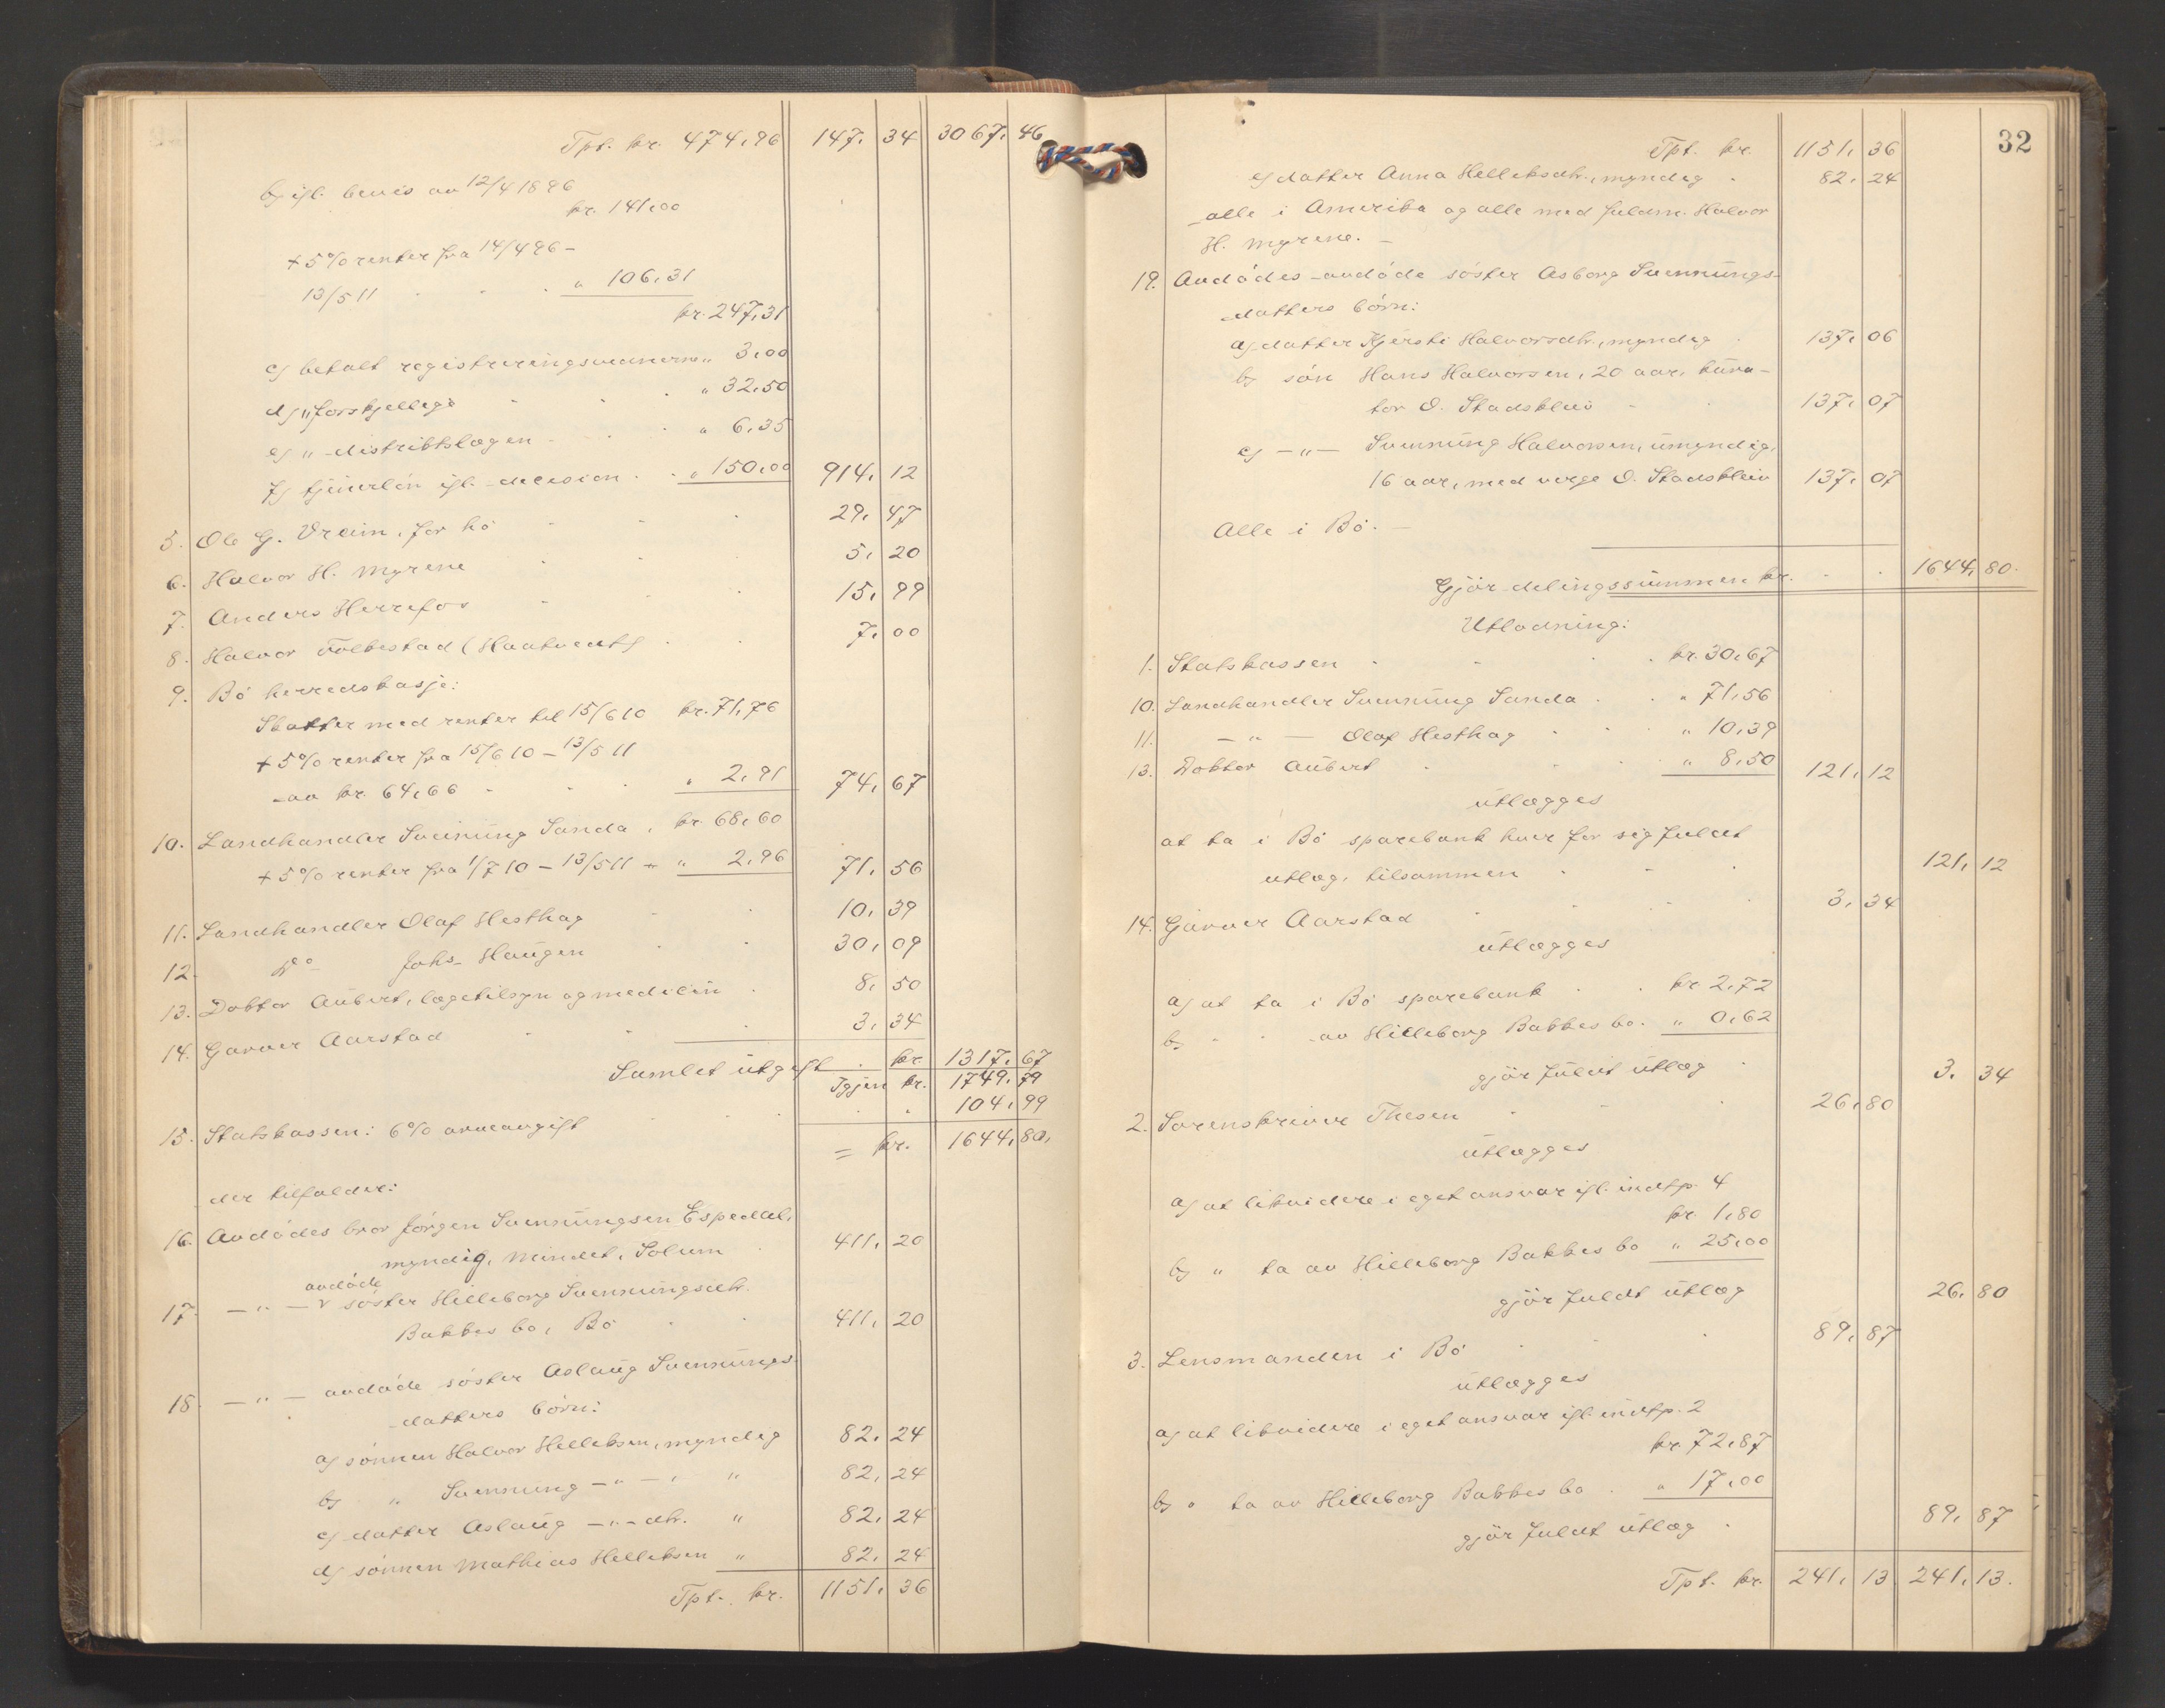 Tpt. kr. 474,96 147,34 3067,46
b) ifl. bevis av 12/4 1896
kr. 141,00
+ 5% renter fra 14/4 96 -
13/5 11 . . . " 106,31
kr. 247,31
c) betalt registreringsvidnerne " 3,00
d) " forskjellige . . . " 32,50
e) " distriktslægen . . . " 6,35
f) tjenerløn ifl. decision . . " 150,00 914,12
5. Ole G. Vreim, for hø . . . 29,47
6. Halvor H. Myrene . . 5,20
7. Anders Herrefos . . . 15,99
8. Halvor Folkestad (Haatvedt) . . 7,00
9. Bø herredskasse:
Skatter med renter til 15/6 10 kr. 71,76
+ 5% renter fra 15/6 10 - 13/5 11
av kr. 64,66 . . . " 2,91 74,67
10. Landhandler Sveinung Sanda . kr. 68,60
+ 5% renter fra 1/7 10 - 13/5 11 - " 2,96 71,56
11. Landhandler Olaf Hesthag . . 10,39
12. Do Johs. Haugen . . 30,09
13. Doktor Aubert, lægetilsyn og medicin . 8,50
14. Garver Aarstad . . . 3,34
Samlet utgift . kr. 1317,67
Igjen kr. 1749,79
15. Statskassen: 6% arveavgift . . . . . 104,99
= kr. 1644,80.
der tilfalder:
16. Avdødes bror Jørgen Svennungsen Espedal,
myndig, Mindet, Solum . 411,20
avdøde
17. - " - v søster Hilleborg Svennungsdtr.
Bakkes bo, Bø . . 411,20
18. - " - avdøde søster Aslaug Svennungs-
datters børn:
a) sønnen Halvor Helleksen, myndig 82,24
b) " Svennung - " - , " 82,24
c) datter Aslaug - " - dtr. " 82,24
d) sønnen Mathias Helleksen " 82,24
Tpt. kr. 1151,36
32
Tpt. kr. 1151,36
e) datter Anna Helleksdtr., myndig . 82,24
alle i Amerika og alle med fuldm. Halvor
H. Myrene. -
19. Avdødes avdøde søster Asborg Svennungs-
datters børn:
a) datter Kjersti Halvorsdtr., myndig . 137,06
b) søn Hans Halvorsen, 20 aar, kura-
tor O. Stadskleiv . . 137,07
c) - " - Svennung Halvorsen, umyndig,
16 aar, med verge O. Stadskleiv 137,07
Alle i Bø. -
Gjør delingssummen kr. . . 1644,80.
Utlodning:
1. Statskassen . . . . kr. 30,67
10. Landhandler Svennung Sanda . . " 71,56
11. - " - Olaf Hesthag . . " 10,39
13. Doktor Aubert . . . " 8,50 121,12
utlægges
at ta i Bø sparebank hver for sig fuldt
utlæg, tilsammen . . . 121,12
14. Garver Aarstad . . . . 3,34
utlægges
a) at ta i Bø sparebank . . kr. 2,72
b) " " av Hilleborg Bakkes bo. " 0,62
gjør fuldt utlæg . 3,34
2. Sorenskriver Thesen . . . 26,80
utlægges
a) at likvidere i eget ansvar ifl. indtp. 4
kr. 1,80
b) " ta av Hilleborg Bakkes bo " 25,00
gjør fuldt utlæg 26,80
3. Lensmanden i Bø . . . 89,87
utlægges
a) at likvidere i eget ansvar ifl. indtp. 2
kr. 72,87
b) " ta av Hilleborg Bakkes bo . " 17,00
gjør fuldt utlæg . 89,87
Tpt. kr. 241,13 241,13.